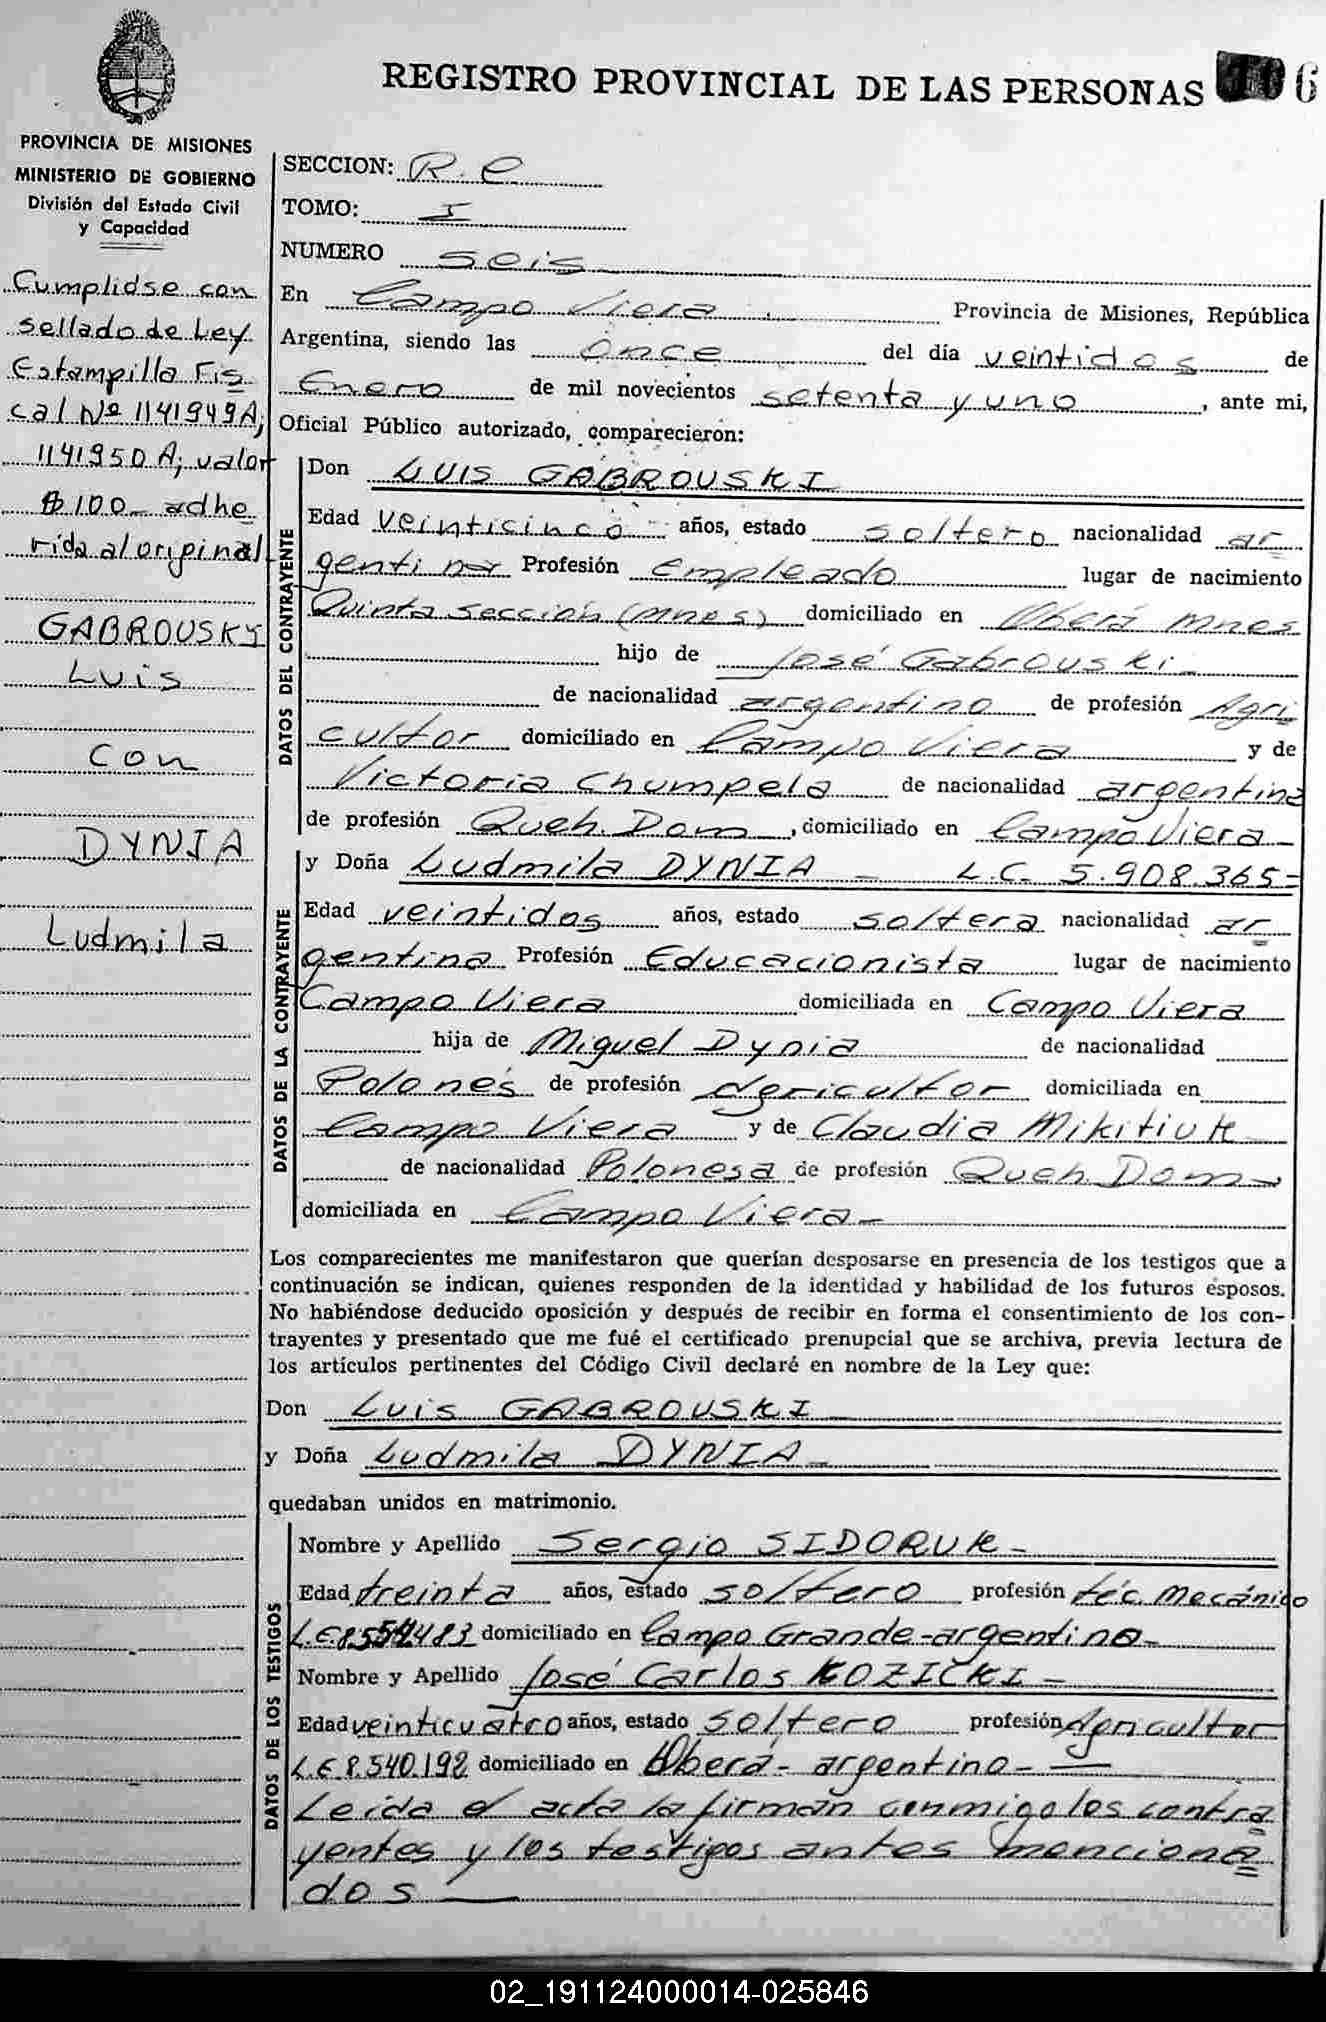 REGISTRO PROVINCIAL DE LAS PERSONAS 6
PROVINCIA DE MISIONES
MINISTERIO DE GOBIERNO
División del Estado Civil
y Capacidad
Cumplidse con
sellado de Ley
Estampilla Fis
cal Nº 1141949A;
1141950 A; valor
$ 100- adhe
rida al original
GABROUSKI
Luis
con
DYNIA
Ludmila
SECCION: R. C
TOMO: I
NUMERO seis
En Campo Viera Provincia de Misiones, República
Argentina, siendo las once del día veintidos de
Enero de mil novecientos setenta y uno, ante mi,
Oficial Público autorizado, comparecieron:
DATOS DEL CONTRAYENTE
Don LUIS GABROUSKI
Edad veinticinco años, estado soltero nacionalidad ar
gentino Profesión Empleado lugar de nacimiento
Quinta sección (Mnes) domiciliado en Oberá Mnes
hijo de José Gabrouski
de nacionalidad argentino de profesión Agri
cultor domiciliado en Campo Viera y de
Victoria Chumpela de nacionalidad argentina
de profesión Queh. Dom, domiciliado en Campo Viera
y Doña Ludmila DYNIA - L.C. 5.908.365=
DATOS DE LA CONTRAYENTE
Edad veintidos años, estado soltera nacionalidad ar
gentina Profesión Educacionista lugar de nacimiento
Campo Viera domiciliada en Campo Viera
hija de Miguel Dynia de nacionalidad
Polonés de profesión Agricultor domiciliada en
Campo Viera y de Claudia Mikitiuk
de nacionalidad Polonesa de profesión Queh. Dom-
domiciliada en Campo Viera-
Los comparecientes me manifestaron que querían desposarse en presencia de los testigos que a
continuación se indican, quienes responden de la identidad y habilidad de los futuros esposos.
No habiéndose deducido oposición y después de recibir en forma el consentimiento de los con-
trayentes y presentado que me fué el certificado prenupcial que se archiva, previa lectura de
los artículos pertinentes del Código Civil declaré en nombre de la Ley que:
Don Luis GABROUSKI
y Doña Ludmila DYNIA-
quedaban unidos en matrimonio.
DATOS DE LOS TESTIGOS
Nombre y Apellido Sergio SIDORUK-
Edad treinta años, estado soltero profesión téc. Mecánico
L.E. domiciliado en Campo Grande-argentino-
Nombre y Apellido José Carlos KOZICKI-
Edad veinticuatro años, estado soltero profesión Agricultor
L.E 8.540.192 domiciliado en Oberá- argentino-
Leída el acta la firman conmigo los contra
yentes y los testigos antes menciona
dos
02_191124000014-025846